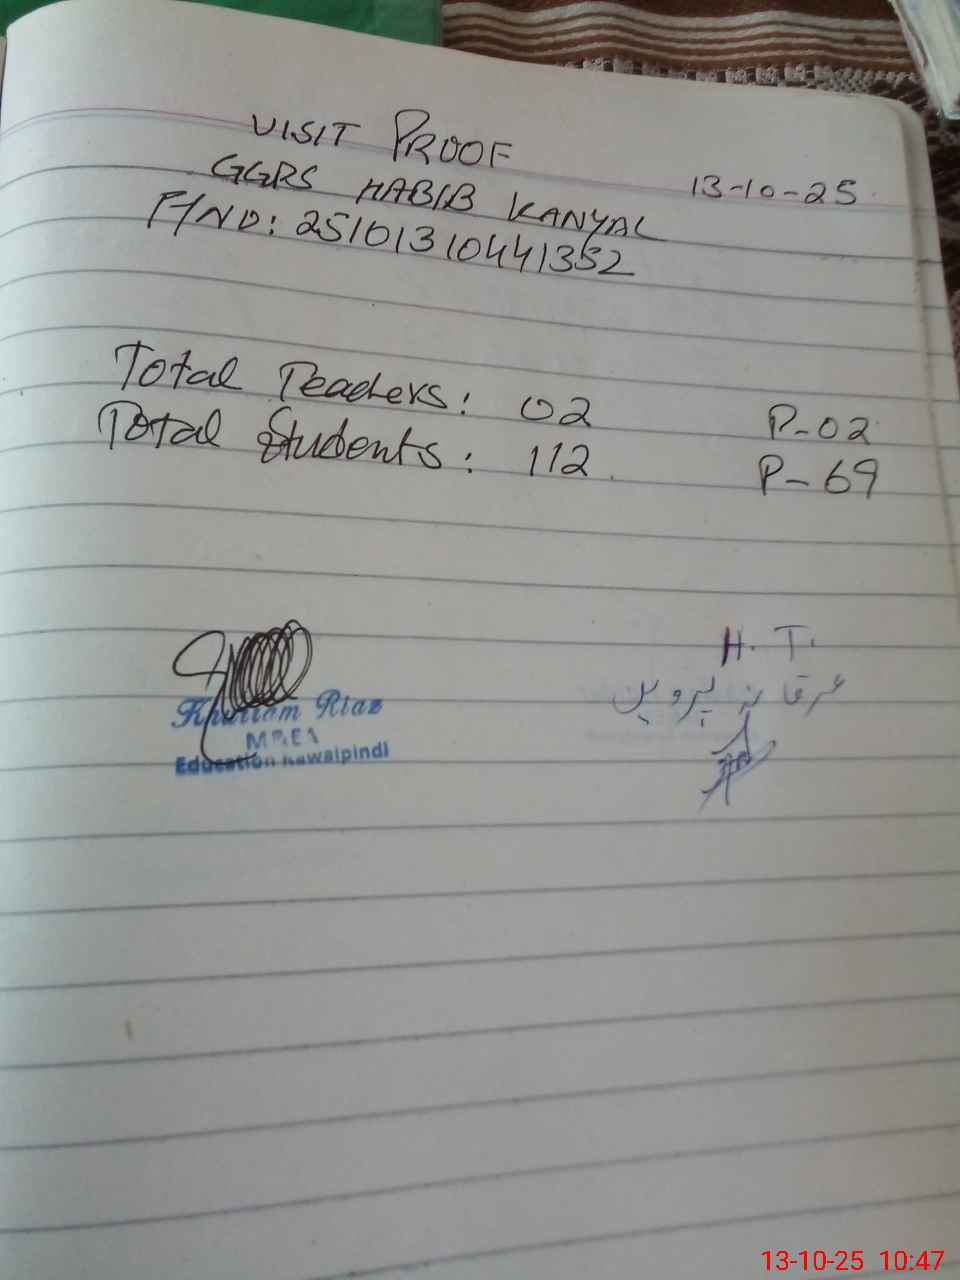 VISIT PROOF
13-10-25
GGRS HABIB KANYAL
F/NO: 25101310441352
Total Teachers: 02 P-02
Total Students: 112 P-69
H. T.
عرفانہ پروین
Khurram Riaz
MREA
Education Rawalpindi
13-10-25 10:47